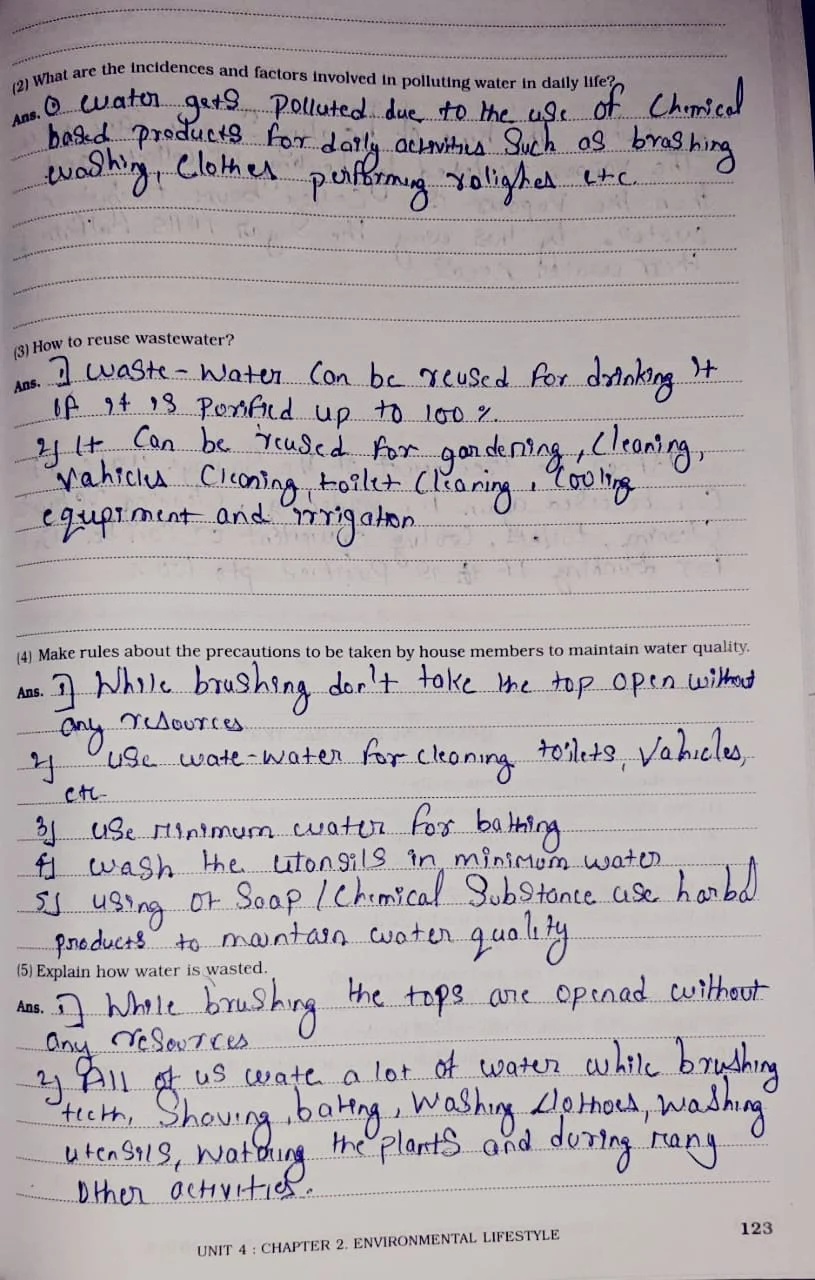 (2) What are the incidences and factors involved in polluting water in daily life?
Ans. ① Water gets polluted due to the use of Chemical
based products for daily activities Such as brashing
washing, Clothes performingralighes etc.
(3) How to reuse wastewater?
Ans. 1] Waste-Water Can be reused for drinking it
if it is Porified up to 100 %.
2] It Can be reused for gardening, Cleaning,
Vahicles Cleaning, toilet Cleaning, Cooling
equipment and irrigation
(4) Make rules about the precautions to be taken by house members to maintain water quality.
Ans. 1] While brushing don't take the top open without
any resources
2] use wate-water for cleaning toilets, Vahicles,
etc
3] use Minimum water for bathing
4] wash the utonsils in minimum water
5] using of Soap / Chemical Substance use harbal
products to maintain water quality
(5) Explain how water is wasted.
Ans. 1] While brushing the tops are openad without
any resources
2] All of us wate a lot of water while brushing
teeth, Shaving, bating, Washing Clothoes, washing
utensils, watering the plants and during many
Other activities.
UNIT 4 : CHAPTER 2. ENVIRONMENTAL LIFESTYLE
123